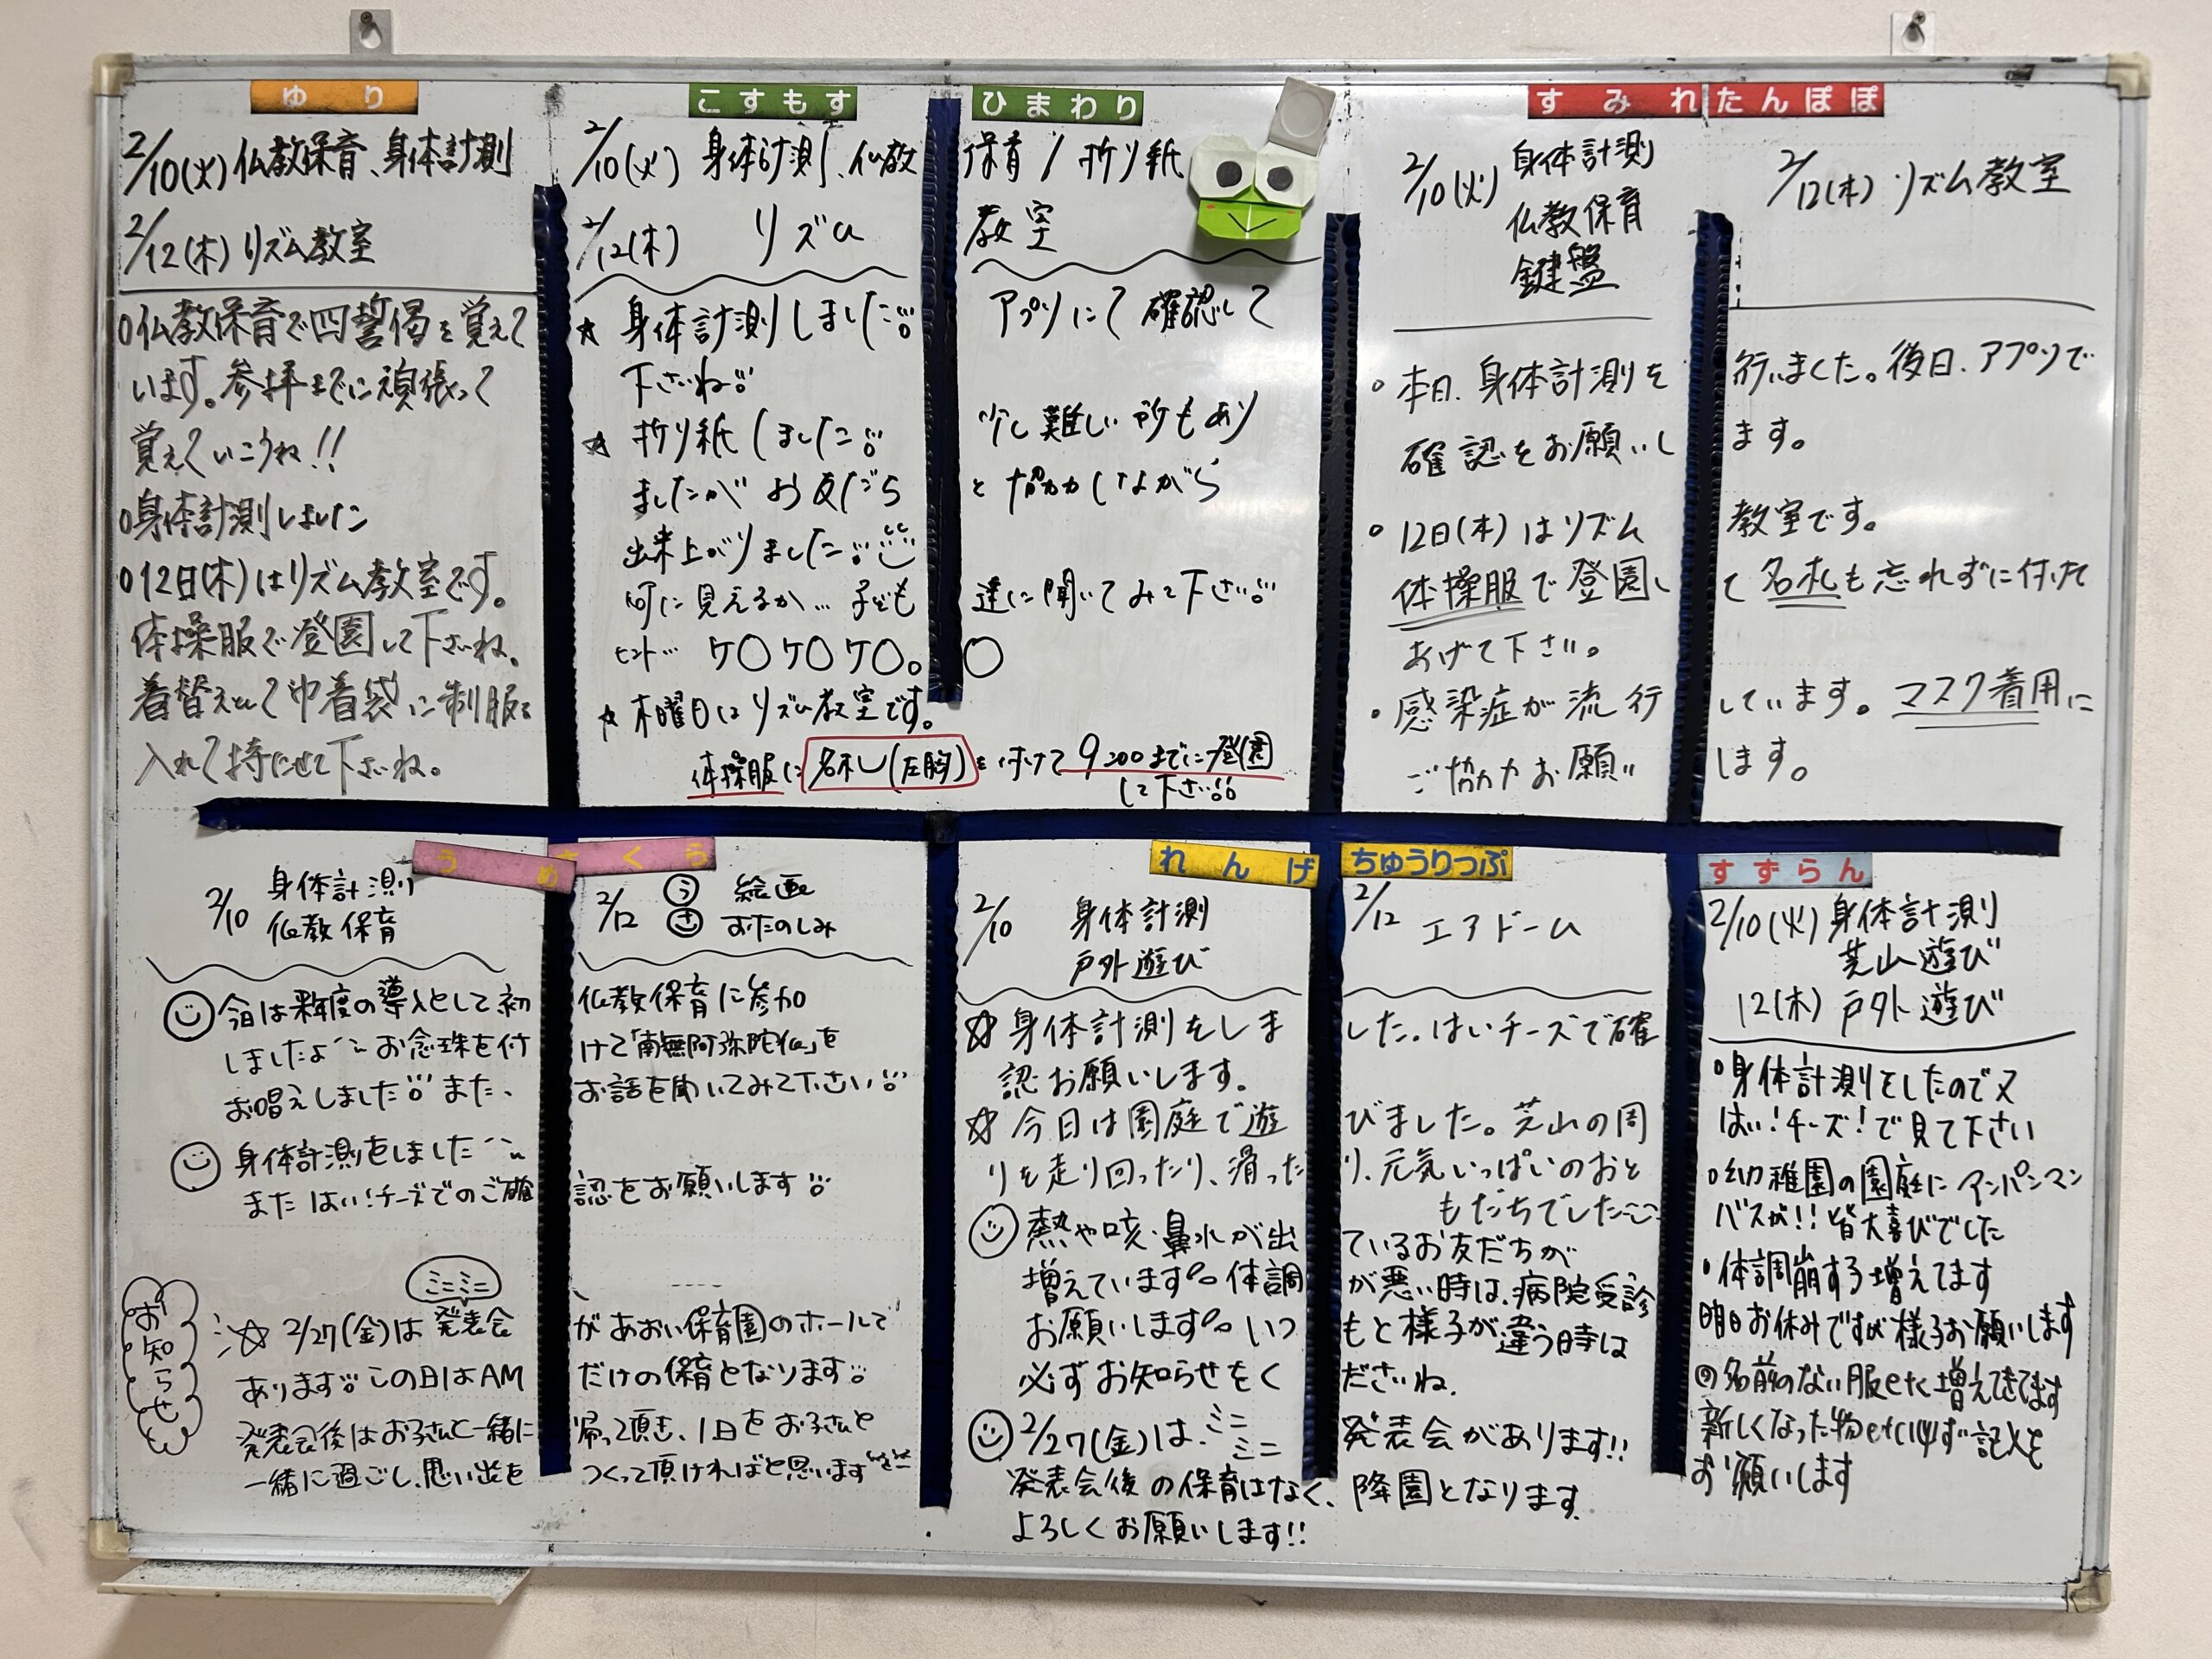 ゆり
2/10(火) 仏教保育、身体計測
2/12(木) リズム教室
○仏教保育で四誓偈を覚えて
います。参拝までに頑張って
覚えていこうね!!
○身体計測しました
○12日(木)はリズム教室です。
体操服で登園して下さいね。
着替えとして巾着袋に制服を
入れて持たせて下さいね。
こすもす ひまわり
2/10(火) 身体計測、仏教保育/折り紙
2/12(木) リズム教室
☆ 身体計測しました アプリにて確認して
下さいね
☆ 折り紙しました 少し難しい所もあり
ましたがお友だちと協力しながら
出来上がりました
何に見えるか… 子ども達に聞いてみて下さい
ヒント… ケ○ケ○ケ○。○
☆ 木曜日はリズム教室です。
体操服に名札(左胸)を付けて9:00までに登園
して下さい
すみれ たんぽぽ
2/10(火) 身体計測
仏教保育
鍵盤
2/12(木) リズム教室
• 本日、身体計測を行いました。後日、アプリで
確認をお願いします。
• 12日(木)はリズム教室です。
体操服で登園して名札も忘れずに付けて
あげて下さい。
• 感染症が流行しています。マスク着用に
ご協力お願いします。
うめ さくら
2/10 身体計測
仏教保育
2/12 う 絵画
さ おたのしみ
今日は来年度の導入として初仏教保育に参加
しましたよ お念珠を付けて「南無阿弥陀仏」を
お唱えしました また、お話を聞いてみて下さい
身体計測をしました
また はい!チーズでのご確認をお願いします
お知らせ
ミニミニ
☆ 2/27(金)は発表会があおい保育園のホールで
あります この日はAMだけの保育となります
発表会後はお子さんと一緒に帰って頂き、1日をお子さんと
一緒に過ごし、思い出をつくって頂ければと思います
れんげ ちゅうりっぷ
2/10 身体計測
戸外遊び
2/12 エアドーム
☆ 身体計測をしました。はいチーズで確
認お願いします。
☆ 今日は園庭で遊びました。芝山の周
りを走り回ったり、滑ったり、元気いっぱいのおと
もだちでした
熱や咳・鼻水が出ているお友だちが
増えています 体調が悪い時は、病院受診
お願いします いつもと様子が違う時は
必ずお知らせをくださいね。
2/27(金)は、ミニミニ発表会があります!!
発表会後の保育はなく、降園となります。
よろしくお願いします!!
すずらん
2/10(火) 身体計測
芝山遊び
12(木) 戸外遊び
○身体計測をしたので又
はい!チーズ!で見て下さい
○幼稚園の園庭にアンパンマン
バスが!! 皆大喜びでした
• 体調崩す子増えてます
明日お休みですが様子お願いします
◎名前のない服etc増えてきてます
新しくなった物etc必ず記入を
お願いします